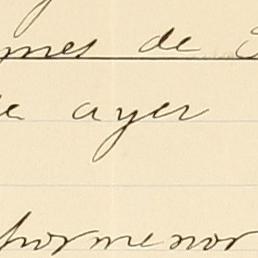 mes de
ayer
pormenor